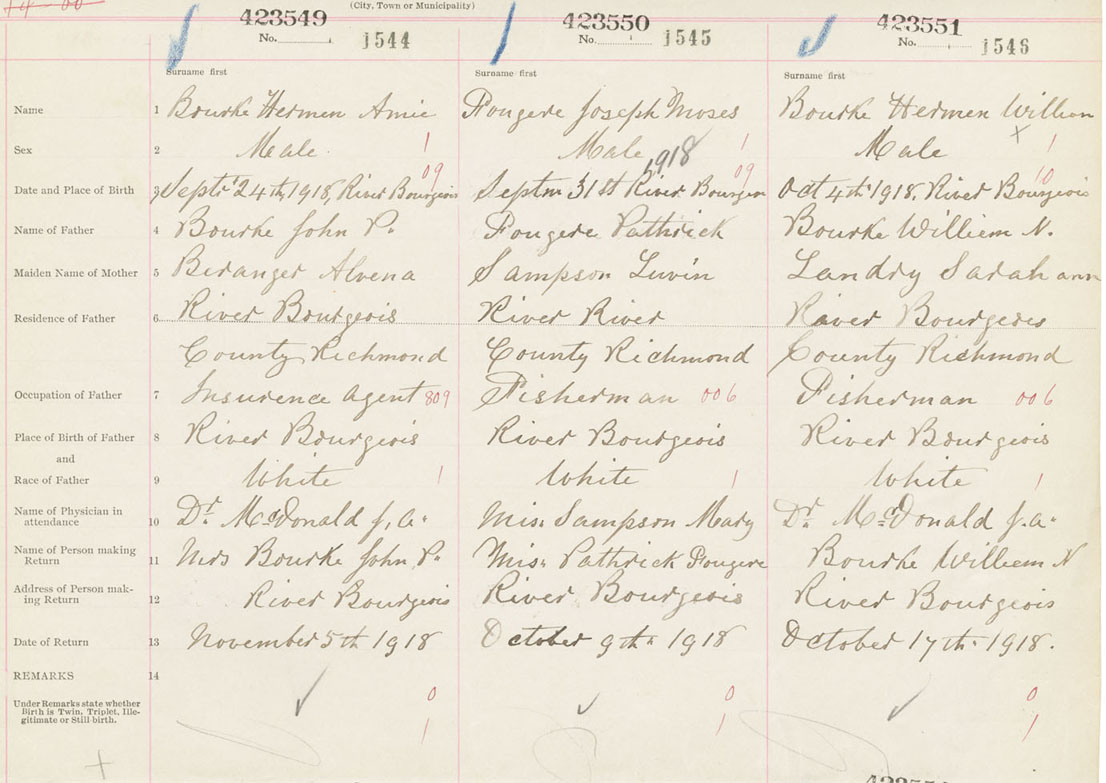 14-00
(City, Town or Municipality)
423549 423550 423551
No. 1544 No. 1545 No. 1546
Surname first Surname first Surname first
Name 1 Bourke Hermen Amie Fougere Joseph Moses Bourke Hermen William
Sex 2 Male 1 Male 1 Male x 1
09 1918 09 10
Date and Place of Birth 3 Septr 24th, 1918, River Bourgeois Septm 31st River Bourgeois Oct 4th 1918. River Bourgeois
Name of Father 4 Bourke John P. Fougere Pathrick Bourke Williem N.
Maiden Name of Mother 5 Beranger Alvena Sampson Luvin Landry Sarah ann
Residence of Father 6 River Bourgeois River River River Bourgeois
County Richmond County Richmond County Richmond
Occupation of Father 7 Insurence Agent 809 Fisherman 006 Fisherman 006
Place of Birth of Father 8 River Bourgeois River Bourgeois River Bourgeois
and
Race of Father 9 White 1 White 1 White 1
Name of Physician in
attendance 10 Dr. McDonald J. A. Miss Sampson Mary Dr. McDonald J. A.
Name of Person making
Return 11 Mrs Bourke John P. Miss Pathrick Fougere Bourke Williem N
Address of Person mak-
ing Return 12 River Bourgeois River Bourgeois River Bourgeois
Date of Return 13 November 5th 1918 October 9th 1918 October 17th 1918.
REMARKS 14
Under Remarks state whether 0 0 0
Birth is Twin, Triplet, Ille-
gitimate or Still-birth. 1 1 1